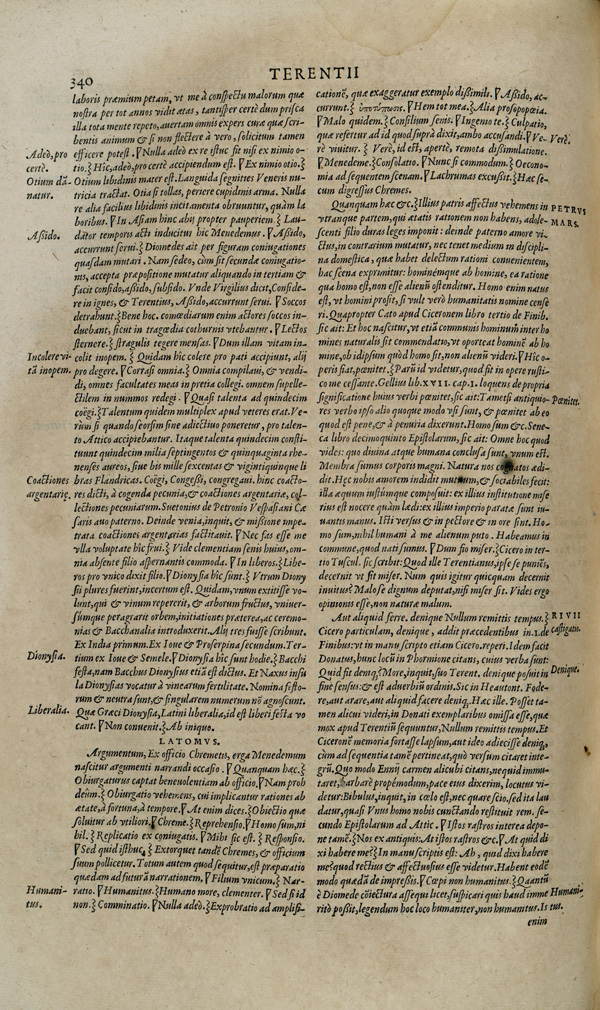 340
TERENTII
laboris præmium petam, vt me à conspectu malorum quæ
nostra per tot annos vidit ætas, tantisper certè dum prisca
illa tota mente repeto, auertam omnis expers curæ quæ scri-
bentis animum & si non flectere à vero, solicitum tamen
Adeò, pro
certè.
efficere potest. ∇Nulla adeò ex re istuc fit nisi ex nimio o-
tio.}Hic, adeò, pro certè accipiendum est. ∇Ex nimio otio.}
Otium dã-
natur.
Otium libidinis mater est. Languida segnities Veneris nu-
tricia tractat. Otia si tollas, periere cupidinis arma. Nulla
re alia facilius libidinis incitamenta obruuntur, quàm la
boribus. ∇In Asiam hinc abij propter pauperiem} Lau-
Aßido.
dator temporis acti inducitur hic Menedemus. ∇Aßido,
accurrunt serui.}Diomedes ait per figuram coniugationes
quasdam mutari. Nam sedeo, cum sit secundæ coniugatio-
nis, accepta præpositione mutatur aliquando in tertiam &
facit consido, aßido, subsido. Vnde Virgilius dicit, Conside-
re in ignes, & Terentius, Aßido, accurrunt serui. ∇Soccos
detrahunt.}Bene hoc. comœdiarum enim actores soccos in-
duebant, sicut in tragœdia cothurnis vtebantur. ∇Lectos
sternere.} stragulis tegere mensas. ∇Dum illam vitam in-
Incolere vi-
tã inopem.
colit inopem.} Quidam hic colere pro pati accipiunt, alij
pro degere. ∇Corrasi omnia.} Omnia compilaui, & vendi-
di, omnes facultates meas in pretia collegi. omnem supelle-
ctilem in nummos redegi. ∇Quasi talenta ad quindecim
coëgi.}Talentum quidem multiplex apud veteres erat. Ve-
rùm si quando seorsim sine adiectiuo poneretur, pro talen-
to Attico accipiebatur. Itaque talenta quindecim consti-
tuunt quindecim milia septingentos & quinquaginta rhe-
nenses aureos, siue bis mille sexcentas & vigintiquinque li
Coactiones
argentariæ.
bras Flandricas. Coëgi, Congeßi, congregaui. hinc coacto-
res dicti, à cogenda pecunia, & coactiones argentariæ, col-
lectiones pecuniarum. Suetonius de Petronio Vespasiani Cæ
saris auo paterno. Deinde venia, inquit, & mißione impe-
trata coactiones argentarias factitauit. ∇Nec fas esse me
vlla voluptate hic frui.} Vide clementiam senis huius, om-
nia absente filio aspernantis commoda. ∇In liberos.}Libe-
ros pro vnico dixit filio. ∇Dionysia hic sunt.} Vtrum Diony
sij plures fuerint, incertum est. Quidam, vnum extitisse vo-
lunt, qui & vinum repererit, & arborum fructus, vniuer-
sumque peragrarit orbem, initiationes præterea, ac ceremo-
nias & Bacchanalia introduxerit. Alij tres fuisse scribunt.
Ex India primum. Ex Ioue & Proserpina secundum. Ter-
Dionysia.
tium ex Ioue & Semele. ∇Dionysia hic sunt hodie.}Bacchi
festa, nam Bacchus Dionysius etiã est dictus. Et Naxus insu
la Dionysias vocatur à vinearum fertilitate. Nomina festo-
rum & neutra sunt, & singularem numerum nõ agnoscunt.
Liberalia.
Quæ Græci Dionysia, Latini liberalia, id est liberi festa vo
cant. ∇Non conuenit.}Ab iniquo.
LATOMVS.
Argumentum, Ex officio Chremetis, erga Menedemum
nascitur argumenti narrandi occasio. ∇Quanquam hæc.}
Obiurgaturus captat beneuolentiam ab officio. ∇Nam proh
deûm.} Obiurgatio vehemens, cui implicantur rationes ab
ætate, à fortuna, à tempore. ∇At enim dices.}Obiectio quæ
soluitur ab vtiliori. ∇Chreme.}Reprehensio. ∇Homo sum, ni
hil.} Replicatio ex coniugatis. ∇Mihi sic est.} Responsio.
∇Sed quid istuc.} Extorquet tandẽ Chremes, & officium
suum pollicetur. Totum autem quod sequitur, est præparatio
quædam ad futuram narrationem. ∇Filium vnicum.} Nar-
Humani-
tus.
ratio. ∇Humanitus.}Humano more, clementer. ∇Sed si id
non.} Comminatio. ∇Nulla adeò.}Exprobratio ad amplifi-
cationẽ, quæ exaggeratur exemplo dißimili. ∇Aßido, ac-
currunt.} ὑποτύπωσις. ∇Hem tot mea.}Alia prosopopœia.
∇Malo quidem.} Consilium senis. ∇Ingenio te.} Culpatio,
quæ refertur ad id quod suprà dixit, ambo accusandi. ∇Ve-
Verè.
rè viuitur.} Verè, id est, apertè, remota dißimulatione.
∇Menedeme.}Consolatio. ∇Nunc si commodum.} Oecono-
mia ad sequentem scenam. ∇Lachrumas excußit.}Hac se-
cum digressus Chremes.
Quanquam hæc &c.}Illius patris affectus vehemens in
PETRVS
MARS.
vtranque partem, qui ætatis rationem non habens, adole-
scenti filio duras leges imponit: deinde paterno amore vi-
ctus, in contrarium mutatur, nec tenet medium in discipli-
na domestica, quæ habet delectum rationi conuenientem,
hac scena exprimitur: hominémque ab homine, ea ratione
qua homo est, non esse alienũ ostenditur. Homo enim natus
est, vt homini prosit, si vult verò humanitatis nomine cense
ri. Quapropter Cato apud Ciceronem libro tertio de Finib.
sic ait: Et hoc nascitur, vt etiã communis hominum inter ho
mines naturalis sit commendatio, vt oporteat hominẽ ab ho
mine, ob id ipsum quòd homo sit, non alienũ videri. ∇Hic o-
peris fiat, pœnitet.} Parũ id videtur, quod sit in opere rusti-
co me cessante. Gellius lib. XVII. cap. 1. loquens de propria
Pœnitet.
significatione huius verbi pœnitet, sic ait: Tametsi antiquio-
res verbo ipso alio quoque modo vsi sunt, & pœnitet ab eo
quod est penè, & à penuria dixerunt. Homo sum &c. Sene-
ca libro decimoquinto Epistolarum, sic ait: Omne hoc quod
vides: quo diuina atque humana conclusa sunt, vnum est.
Membra sumus corporis magni. Natura nos cognatos ædi-
dit. Hæc nobis amorem indidit mutuum, & sociabiles fecit:
illa æquum iustumque composuit: ex illius institutione mise
rius est nocere quàm lædi: ex illius imperio paratæ sunt iu-
uantis manus. Isti versus & in pectore & in ore sint. Ho-
mo sum, nihil humani à me alienum puto. Habeamus in
commune, quod nati sumus. ∇Dum fio miser.}Cicero in ter-
tio Tuscul. sic scribit: Quod ille Terentianus, ipse se puniẽs,
decernit vt fit miser. Num quis igitur quicquam decernit
inuitus? Malo se dignum deputat, nisi miser sit. Vides ergo
opinionis esse, non naturæ malum.
Aut aliquid ferre. denique Nullum remittis tempus.}
RIVII
castigatio.
Cicero particulam, denique, addit præcedentibus in.1.de
Finibus: vt in manuscripto etiam Cicero. reperi. Idem facit
Donatus, hunc locũ in Phormione citans, cuius verba sunt:
Denique.
Quid sit denique.}More, inquit, suo Terent. denique posuit in
fine sensus: & est aduerbiũ ordinis. Sic in Heautont. Fode-
re, aut arare, aut aliquid facere deniq. Hæc ille. Posset ta-
men alicui videri, in Donati exemplaribus omissa esse, quæ
mox apud Terentiũ sequuntur, Nullum remittis tempus. Et
Ciceronẽ memoria fortasse lapsum, aut ideo adiecisse deniq,
cùm ad sequentia tamẽ pertineat, quò versum citaret inte-
grũ. Quo modo Ennij carmen alicubi citans, nequid immu-
taret, barbarè propemodum, pace eius dixerim, locutus vi-
detur. Bibulus, inquit, in cœlo est, nec quare scio, sed ita lau
datur, quasi Vnus homo nobis cunctando restituit rem. se-
cundo Epistolarum ad Attic. ∇Istos rastros interea depo-
ne tamẽ.}Nos ex antiquis: At istos rastros &c. ∇At quid di
xi habere me?} In manuscriptis est: Ah, quid dixi habere
me? quod rectius & affectuosius esse videtur. Habent eodẽ
modo quædã de impreßis. ∇Cœpi non humanitus.}Quantũ
Humani-
tus.
è Diomede coniectura assequi licet, suspicari quis haud imme
ritò poßit, legendum hoc loco humaniter, non humanitus. Is
enim